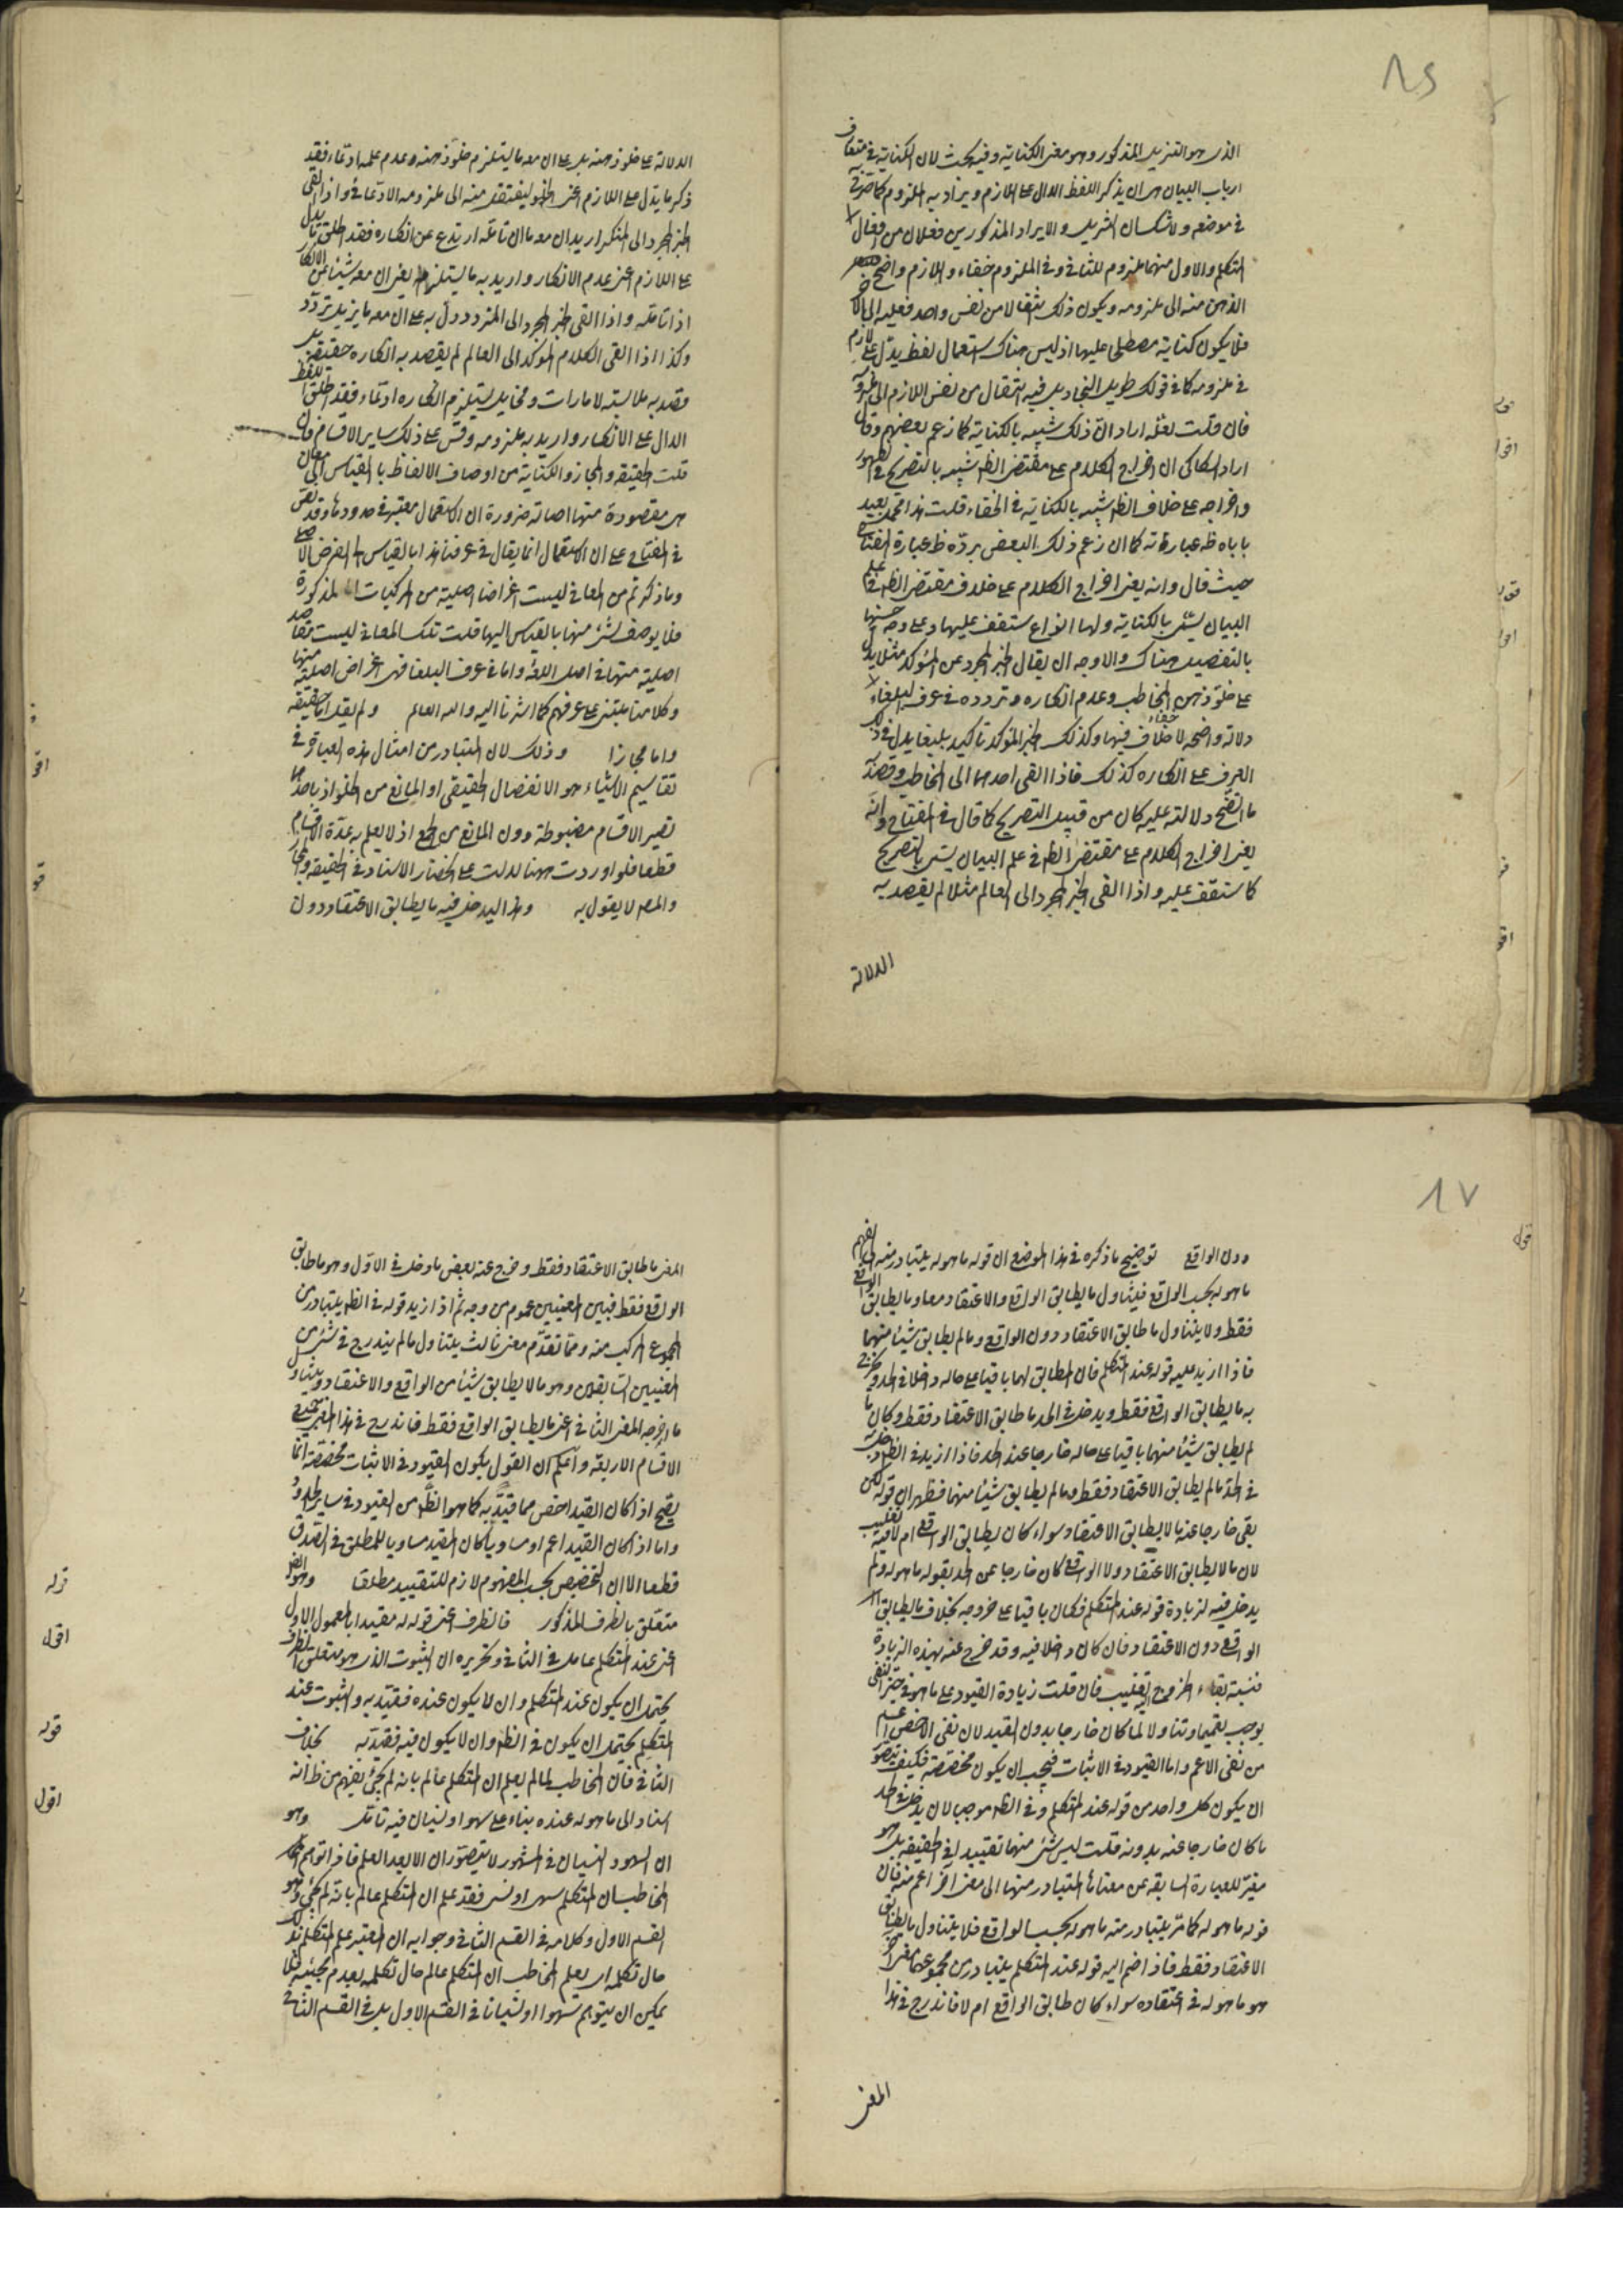 ١٦
الذى هو التنزيل المذكور وهو معنى الكناية وفيه بحث لان الكناية فى متعارف
ارباب البيان هى ان يذكر اللفظ الدال على اللازم ويراد به الملزوم كما صرح به
فى موضعه ولا شك ان التنزيل والايراد المذكورين فعلان من افعال
المتكلم والاول منهما ملزوم للثانى وفى الملزوم خفاء واللازم واضح
الذهن منه الى ملزومه ويكون ذلك انتقالا من نفس واحد فعليه الى الآ
فلا يكون كناية مصطلح عليها اذ ليس هناك استعمال لفظ يدل على لازم
فى ملزومه كما فى قولك طويل النجاد بل فيه انتقال من نفس اللازم الى ملزومه
فان قلت لعله اراد ان ذلك شبيه بالكناية كما زعم بعضهم وقال
اراد السكاكى ان اخراج الكلام على مقتضى الظ شبيه بالتصريح فى الظهور
واخراجه على خلاف الظ شبيه بالكناية فى الخفاء قلت هذا محمل بعيد
ياباه ظ عبارته كما ان زعم ذلك البعض يرده ظ عبارة المفتاح
حيث قال وانه يعنى اخراج الكلام على خلاف مقتضى الظ فى علم
البيان يسمى بالكناية ولها انواع ستقف عليها وعلى وجه حسنها
بالتفصيل هناك والاوجه ان يقال الخبر المجرد عن المؤكد مثلا يدل
على خلو ذهن المخاطب وعدم انكاره وتردده فى عرف البلغاء
دلالة واضحة لا خفاء فيها وكذلك الخبر المؤكد تاكيدا بليغا يدل فى ذلك
العرف على انكاره كذلك فاذا القى احدهما الى المخاطب وقصد
ما اتضح دلالته عليه كان من قبيل التصريح كما قال فى المفتاح وانه
يعنى اخراج الكلام على مقتضى الظ فى علم البيان يسمى بالتصريح
كما ستقف عليه واذا القى الخبر المجرد الى العالم مثلا لم يقصد به
الدلالة
الدلالة على خلو ذهنه بل على ان معه ما يستلزم خلو ذهنه وعدم علمه ادعاء فقد
ذكر ما يدل على اللازم اعنى الخلو لينتقل منه الى ملزومه الادعائى واذا القى
الخبر المجرد الى المنكر اريد ان معه ما ان تامله ارتدع عن انكاره فقد اطلق ما يدل
على اللازم اعنى عدم الانكار واريد به ما يستلزمه يعنى ان معه شيئا من الانكار
اذا تامله واذا القى الخبر المجرد الى المتردد دل به على ان معه ما يزيل تردده
وكذا اذا القى الكلام المؤكد الى العالم لم يقصد به انكاره حقيقة بل
قصد به ملابسته لامارات ومخايل يستلزم انكاره ادعاء فقد اطلق اللفظ
الدال على الانكار واريد به ملزومه وقس على ذلك ساير الاقسام فان
قلت الحقيقة والمجاز والكناية من اوصاف الالفاظ بالقياس الى معان
هى مقصودة منها اصالة ضرورة ان الاستعمال معتبر فى حدودها وقد نص
فى المفتاح على ان الاستعمال انما يقال فى عرفنا هذا بالقياس الى الغرض الاصلى
وما ذكرتم من المعانى ليست اغراضا اصلية من المركبات المذكورة
فلا يوصف شئ منها بالقياس اليها قلت تلك المعانى ليست مقاصد
اصلية منها فى اصل اللغة واما فى عرف البلغا فهى اغراض اصلية منها
وكلامنا مبنى على عرفهم كما اشرنا اليه والله العالم ولم يقل اما حقيقة
واما مجازا وذلك لان المتبادر من امثال هذه العبارة فى
تقاسيم الاشياء هو الانفصال الحقيقى او المانع من الخلو اذ باحدهما
تصير الاقسام مضبوطة دون المانع من الجمع اذ لا يعلم به عدة الاقسام
قطعا فلو اوردت ههنا لدلت على انحصار الاسناد فى الحقيقة والمجاز
والمص لا يقول به وهذا ليدخل فيه ما يطابق الاعتقاد دون
١٧
دون الواقع توضيح ما ذكره فى هذا الموضع ان قوله ما هو له يتبادر منه الى الفهم
ما هو له بحسب الواقع فيتناول ما يطابق الواقع والاعتقاد معا وما يطابق الواقع
فقط ولا يتناول ما طابق الاعتقاد دون الواقع وما لم يطابق شيئا منهما
فاذا ازيد عليه قوله عند المتكلم فان المطابق لهما باقيا على حاله داخلا فى الحد ويخرج
به ما يطابق الواقع فقط ويدخل فى الحد ما طابق الاعتقاد فقط وكان ما
لم يطابق شيئا منهما باقيا على حاله خارجا عن الحد فاذا ازيد فى الظ دخل به
فى الحد ما لم يطابق الاعتقاد فقط وما لم يطابق شيئا منهما فظهر ان قوله لكن
بقى خارجا عنه ما لا يطابق الاعتقاد سواء كان يطابق الواقع ام لا فيه تغليب
لان ما لا يطابق الاعتقاد ولا الواقع كان خارجا عن الحد بقوله ما هو له ولم
يدخل فيه لزيادة قوله عند المتكلم فكان باقيا على خروجه بخلاف ما يطابق
الواقع دون الاعتقاد فان كان داخلا فيه وقد خرج عنه بهذه الزيادة
فنسبة بقاء الخروج اليه تغليب فان قلت زيادة القيود على ما هو فى حيز النفى
يوجب تعميما وتناولا لما كان خارجا بدون القيد لان نفى الاخص اعم
من نفى الاعم واما القيود فى الاثبات فيجب ان يكون مخصصة فكيف يتصور
ان يكون كل واحد من قوله عند المتكلم وفى الظ موجبا لان يدخل فى الحد
ما كان خارجا عنه بدونه قلت ليس شئ منهما تقييدا فى الحقيقة بل هو
مغير للعبارة السابقة عن معناها المتبادر منها الى معنى آخر اعم منه فان
قوله ما هو له كما مر يتبادر منه ما هو له بحسب الواقع فلا يتناول ما يطابق
الاعتقاد فقط فاذا ضم اليه قوله عند المتكلم يتبادر من مجموعهما معنى آخر
هو ما هو له فى اعتقاده سواء كان طابق الواقع ام لا فاندرج فى هذا
المعنى
المعنى ما طابق الاعتقاد فقط وخرج عنه بعض ما دخل فى الاول وهو ما طابق
الواقع فقط فبين المعنيين عموم من وجه ثم اذا زيد قوله فى الظ يتبادر من
المجموع المركب منه ومما تقدم معنى ثالث يتناول ما لم يندرج فى شئ من
المعنيين السابقين وهو ما لا يطابق شيئا من الواقع والاعتقاد ويتناول
ما اخرجه المعنى الثانى اعنى ما يطابق الواقع فقط فاندرج فى هذا المعنى جميع
الاقسام الاربعة واعلم ان القول بكون القيود فى الاثبات مخصصة انما
يصح اذا كان القيد اخص مما قيد به كما هو الظ من القيود فى ساير الحدود
واما اذا كان القيد اعم او مساويا كان المقيد مساويا للمطلق فى الصدق
قطعا الا ان التخصيص بحسب المفهوم لازم للتقييد مطلقا وهو ايضا
متعلق بالظرف المذكور فالظرف اعنى قوله له مقيدا بالمعمول الاول
اعنى عند المتكلم عامل فى الثانى وتحريره ان الثبوت الذى هو متعلق الظرف
يحتمل ان يكون عند المتكلم وان لا يكون عنده فقيد به والثبوت عند
المتكلم يحتمل ان يكون فى الظ وان لا يكون فيه فقيد به بخلاف
الثانى فان المخاطب لما لم يعلم ان المتكلم عالم بانه لم يجئ يفهم من ظ انه
اسناد الى ما هو له عنده بناء على سهو او نسيان فيه تامل وهو
ان السهو والنسيان فى المشهور لا يتصوران الا بعد العلم فاذا توهم
المخاطب ان المتكلم سهى او نسى فقد علم ان المتكلم عالم بانه لم يجئ وهو
القسم الاول وكلامه فى القسم الثانى وجوابه ان المعتبر علم المتكلم بذلك
حال تكلمه اى يعلم المخاطب ان المتكلم عالم حال تكلمه بعدم مجيئه فلا
يمكن ان يتوهم سهوا او نسيانا فى القسم الاول بل فى القسم الثانى
قوله
اقول
قوله
اقول